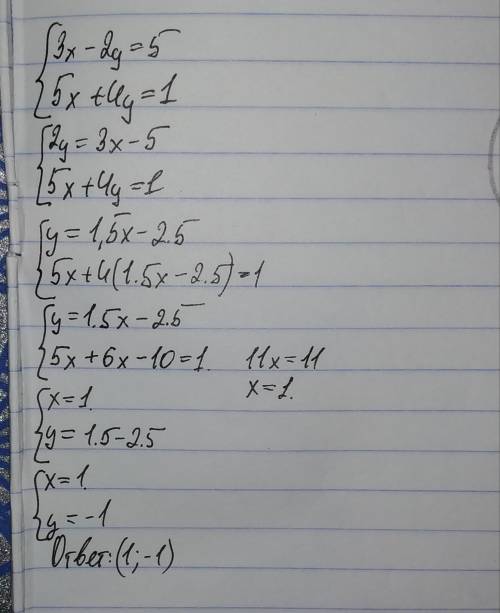 3x - 2y = 5
5x + 4y = 1
2y = 3x - 5
5x + 4y = 1
y = 1,5x - 2.5
5x + 4(1.5x - 2.5) = 1
y = 1.5x - 2.5
5x + 6x - 10 = 1. 11x = 11
x = 1.
x = 1.
y = 1.5 - 2.5
x = 1.
y = -1
Ответ: (1; -1)